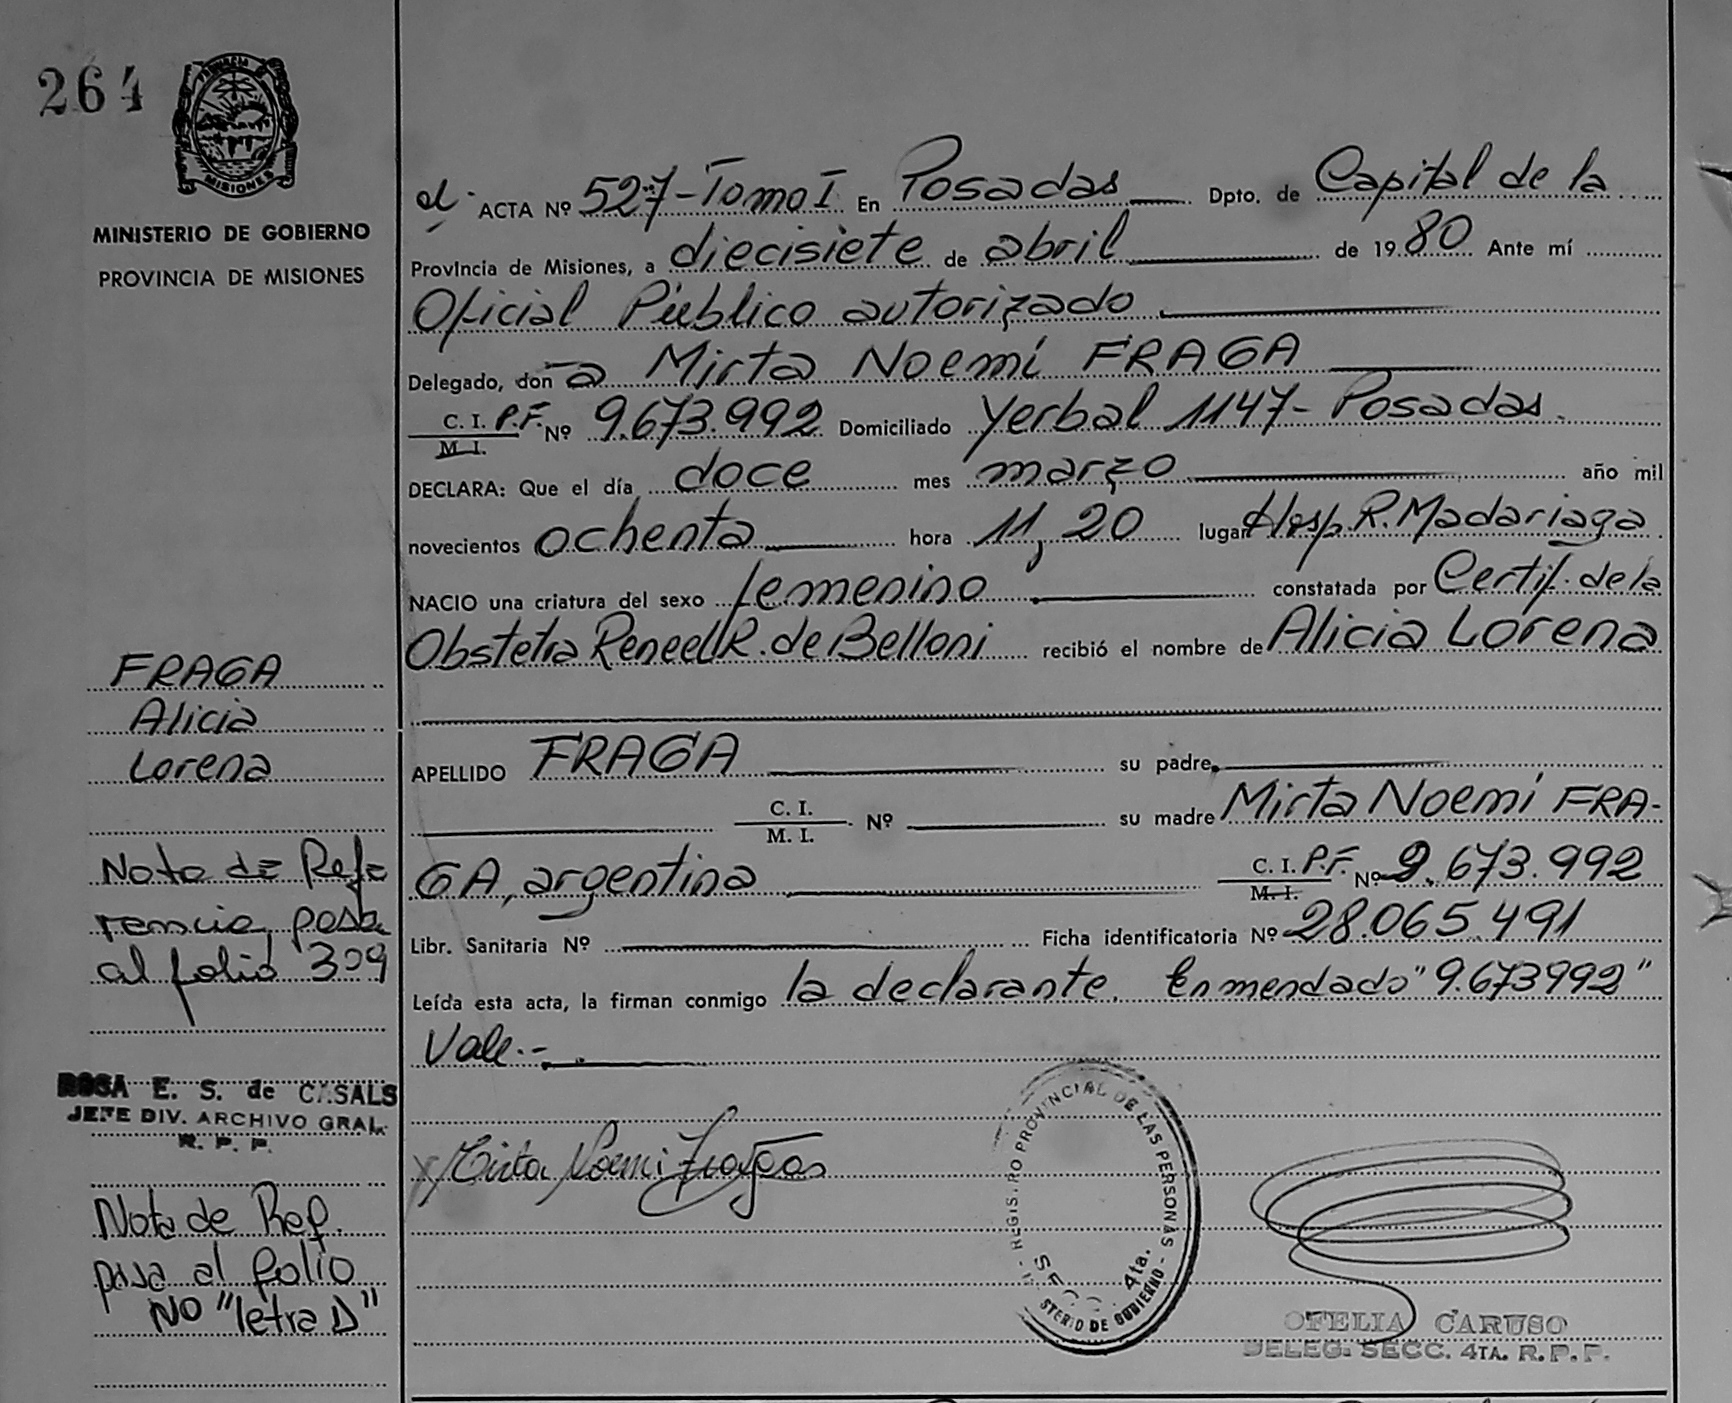 264
PROVINCIA DE MISIONES
MINISTERIO DE GOBIERNO
PROVINCIA DE MISIONES
FRAGA
Alicia
Lorena
Nota de Refe
rencia, pasa
al folio 309
ROSA E. S. de CASALS
JEFE DIV. ARCHIVO GRAL.
R. P. P.
Nota de Ref.
pasa al folio
NO "letra D"
ACTA Nº 527-Tomo I En Posadas Dpto. de Capital de la
Provincia de Misiones, a diecisiete de abril de 1980 Ante mí
Oficial Público autorizado
Delegado, don a Mirta Noemí FRAGA
C. I. P.F. Nº 9.673.992 Domiciliado Yerbal 1147- Posadas.
M. I.
DECLARA: Que el día doce mes marzo año mil
novecientos ochenta hora 11,20 lugar Hosp. R. Madariaga
NACIO una criatura del sexo femenino constatada por Certif. de la
Obstetra R. de Belloni recibió el nombre de Alicia Lorena
APELLIDO FRAGA su padre
C. I. M. I. Nº su madre Mirta Noemí FRA-
GA, argentina C. I. P.F. M. I. Nº 9.673.992
Libr. Sanitaria Nº Ficha identificatoria Nº 28.065.491
Leída esta acta, la firman conmigo la declarante. Enmendado "9.673992"
Vale.-
x Mirta Noemi
REGISTRO PROVINCIAL DE LAS PERSONAS
4ta.
STERIO DE GOBIERNO
OFELIA CARUSO
DELEG. SECC. 4TA. R. P. P.